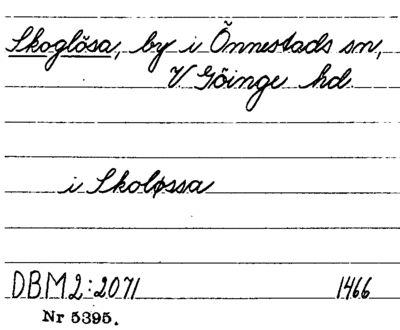 Skoglösa, by i Önnestads sn,
V Göinge hd.
i Skoløssa
DBM2:2071 1466
Nr 5395.